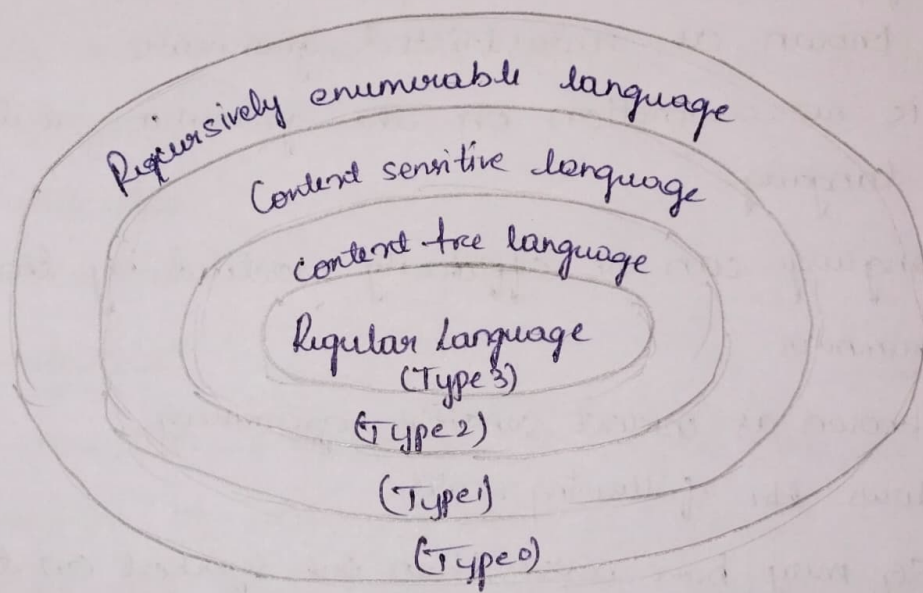 Recursively enumerable language
Context sensitive language
Context free language
Regular Language
(Type 3)
(Type 2)
(Type 1)
(Type 0)